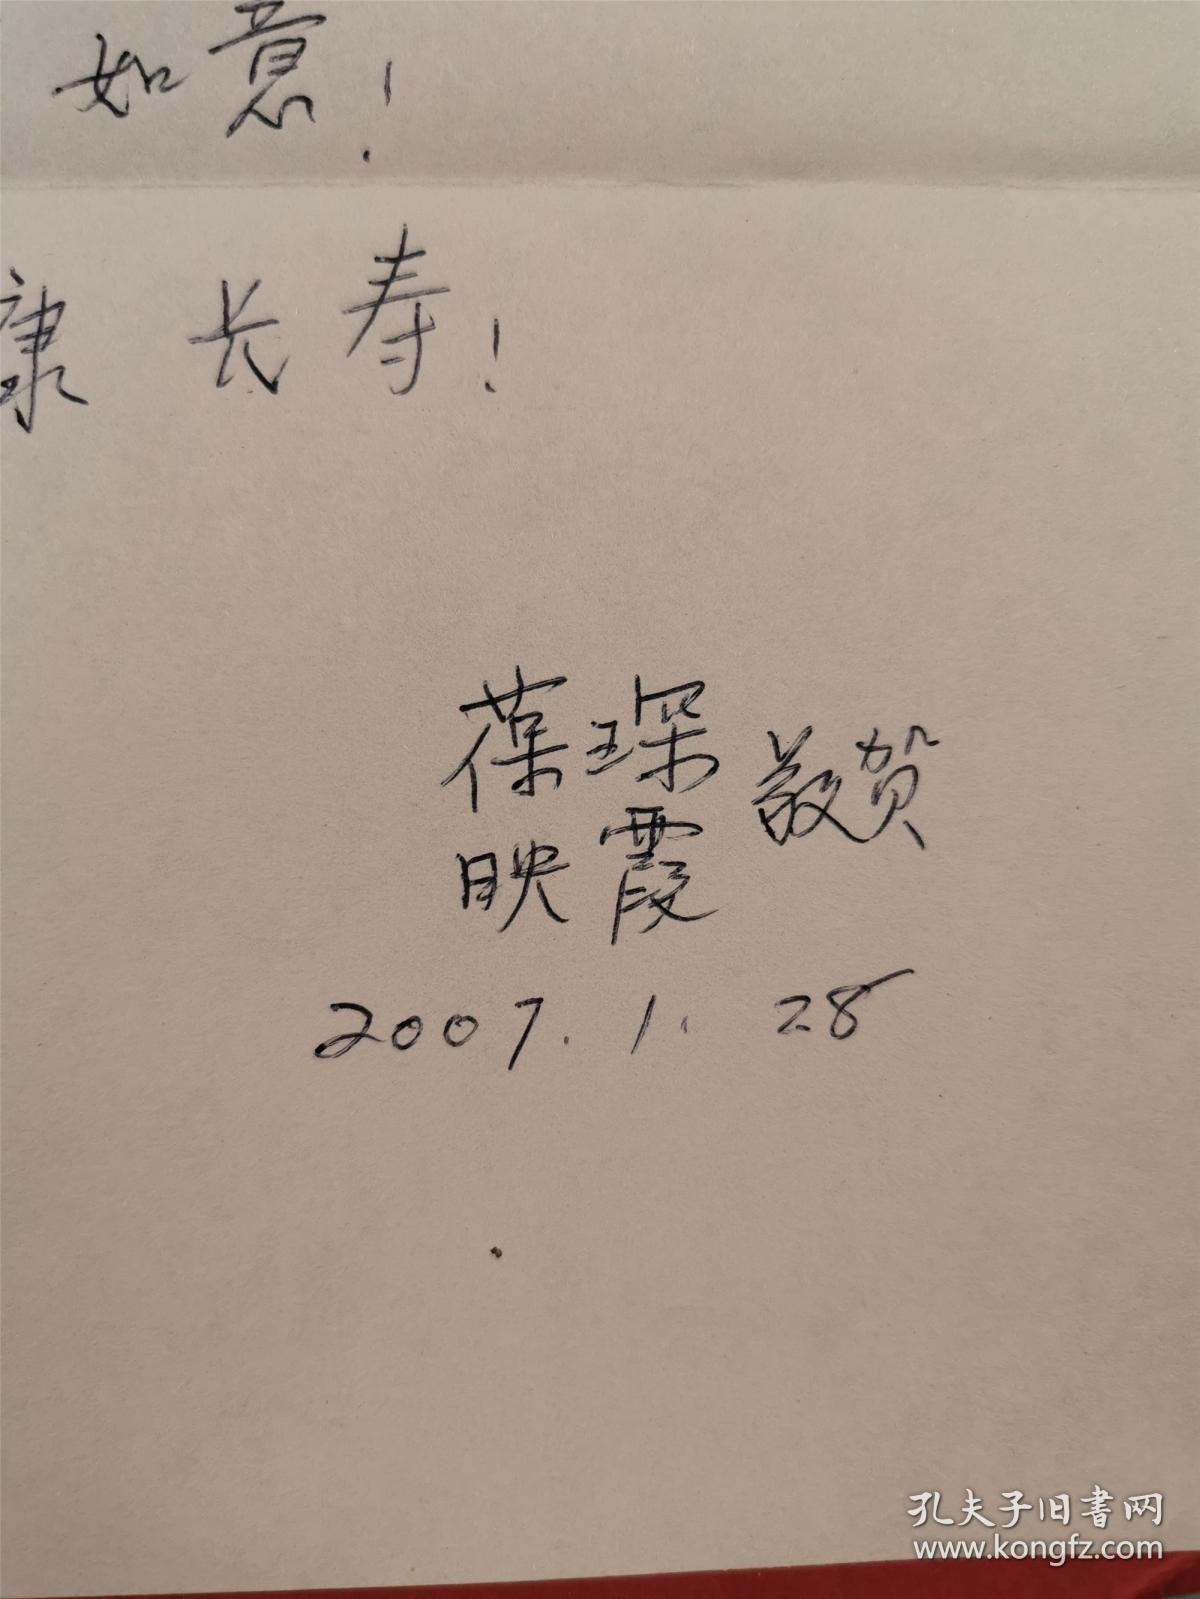 如意！
康长寿！
葆琛
映霞
敬贺
2007.1.28
孔夫子旧书网
www.kongfz.com